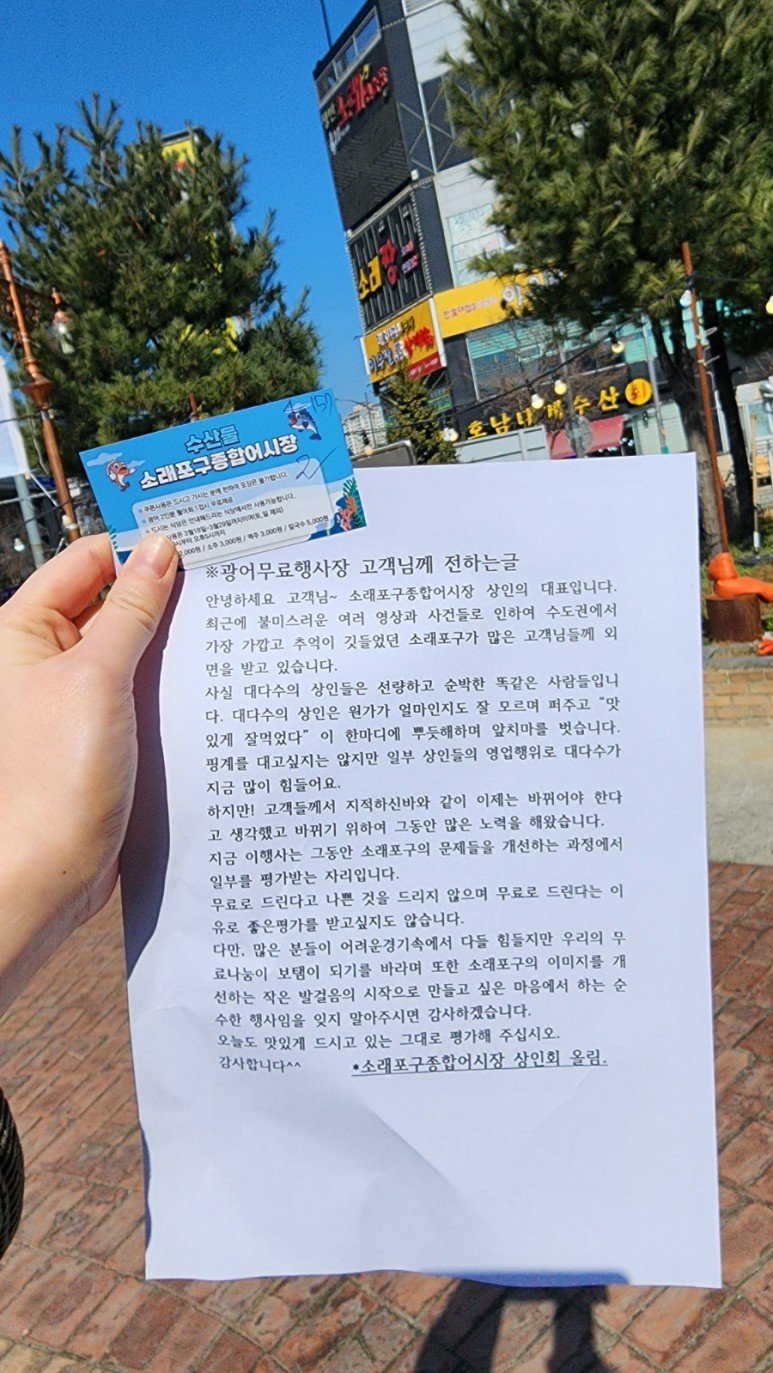 소래
소래
호남
수산
157
수산물
소래포구종합어시장
※ 쿠폰사용은 드시고 가시는 분에 한하여 포장은 불가합니다.
※ 광어 2인분 활어회 1접시 무료제공
※ 드시는 식당은 안내해드리는 식당에서만 사용가능합니다.
사용은 3월18일~3월29일까지이며(토,일 제외)
부터 오후5시까지
000원 / 소주 3,000원 / 맥주 3,000원 / 칼국수 5,000원
※광어무료행사장 고객님께 전하는글
안녕하세요 고객님~ 소래포구종합어시장 상인의 대표입니다.
최근에 불미스러운 여러 영상과 사건들로 인하여 수도권에서
가장 가깝고 추억이 깃들었던 소래포구가 많은 고객님들께 외
면을 받고 있습니다.
사실 대다수의 상인들은 선량하고 순박한 똑같은 사람들입니
다. 대다수의 상인은 원가가 얼마인지도 잘 모르며 퍼주고 “맛
있게 잘먹었다” 이 한마디에 뿌듯해하며 앞치마를 벗습니다.
핑계를 대고싶지는 않지만 일부 상인들의 영업행위로 대다수가
지금 많이 힘들어요.
하지만! 고객들께서 지적하신바와 같이 이제는 바뀌어야 한다
고 생각했고 바뀌기 위하여 그동안 많은 노력을 해왔습니다.
지금 이행사는 그동안 소래포구의 문제들을 개선하는 과정에서
일부를 평가받는 자리입니다.
무료로 드린다고 나쁜 것을 드리지 않으며 무료로 드린다는 이
유로 좋은평가를 받고싶지도 않습니다.
다만, 많은 분들이 어려운경기속에서 다들 힘들지만 우리의 무
료나눔이 보탬이 되기를 바라며 또한 소래포구의 이미지를 개
선하는 작은 발걸음의 시작으로 만들고 싶은 마음에서 하는 순
수한 행사임을 잊지 말아주시면 감사하겠습니다.
오늘도 맛있게 드시고 있는 그대로 평가해 주십시오.
감사합니다^^
*소래포구종합어시장 상인회 올림.